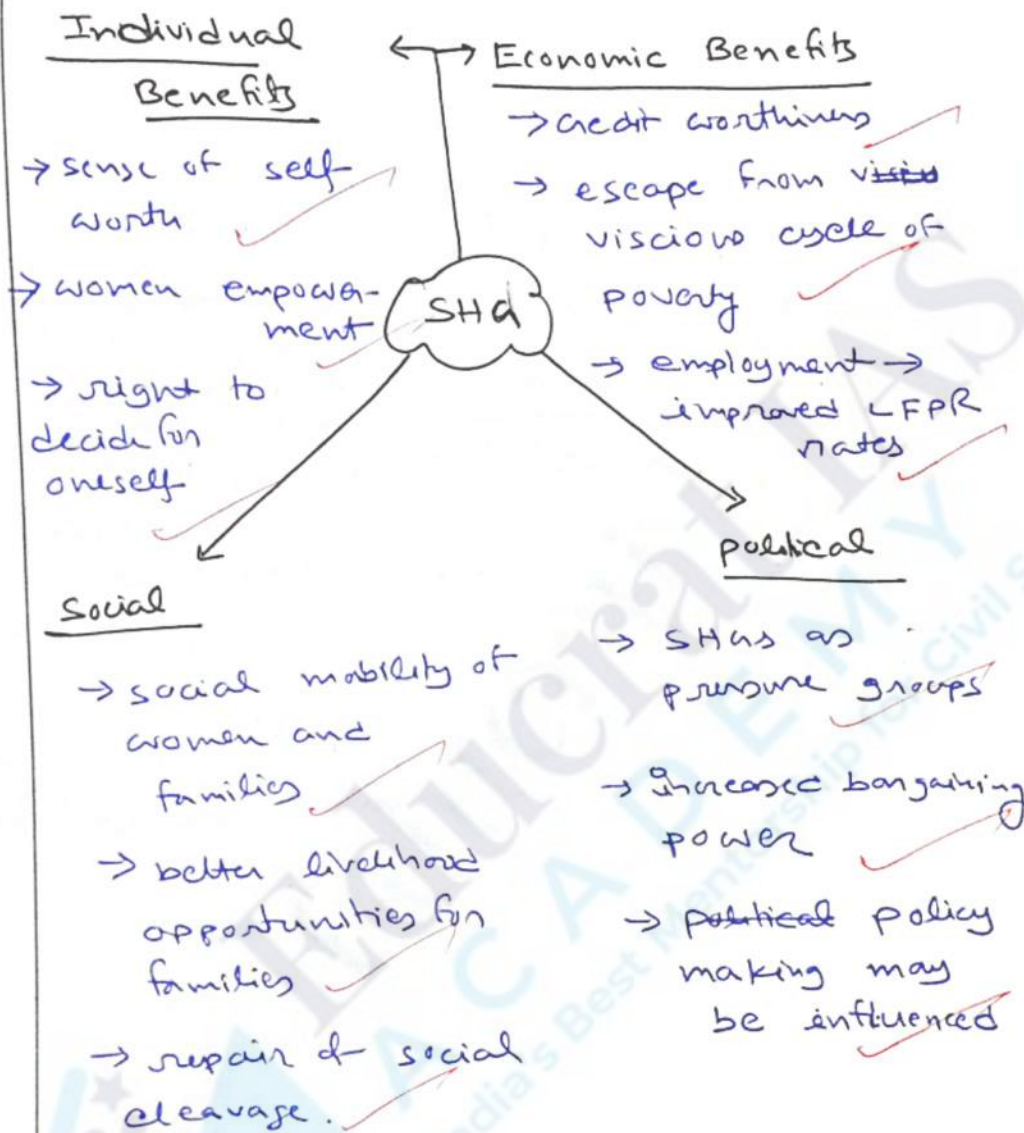 Individual
Benefits
→ sense of self-
worth
→ women empower-
ment
→ right to
decide for
oneself
Economic Benefits
→ credit worthiness
→ escape from
viscious cycle of
poverty
→ employment →
improved LFPR
rates
SHG
Social
→ social mobility of
women and
families
→ better livelihood
opportunities for
families
→ repair of social
cleavage.
political
→ SHGs as
pressure groups
→ Increased bargaining
power
→ political policy
making may
be influenced
Educrat IAS
ACADEMY
India's Best Mentorship for Civil s